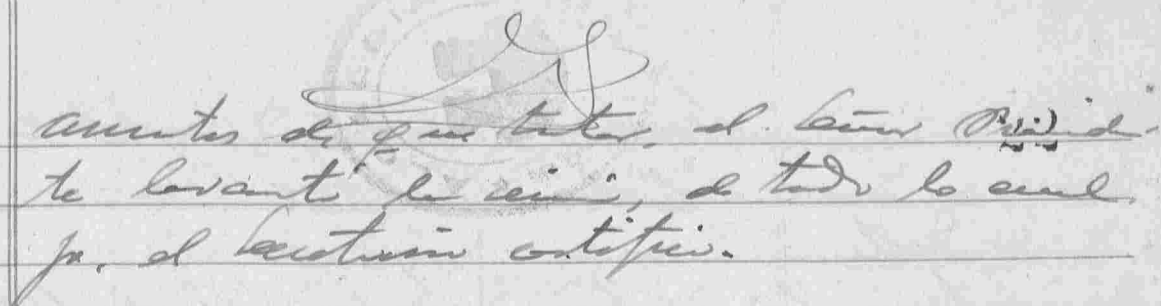 asuntos de que tratar, el Señor Presiden-
te levantó la sesión, de todo lo cual
yo, el Secretario certifico.